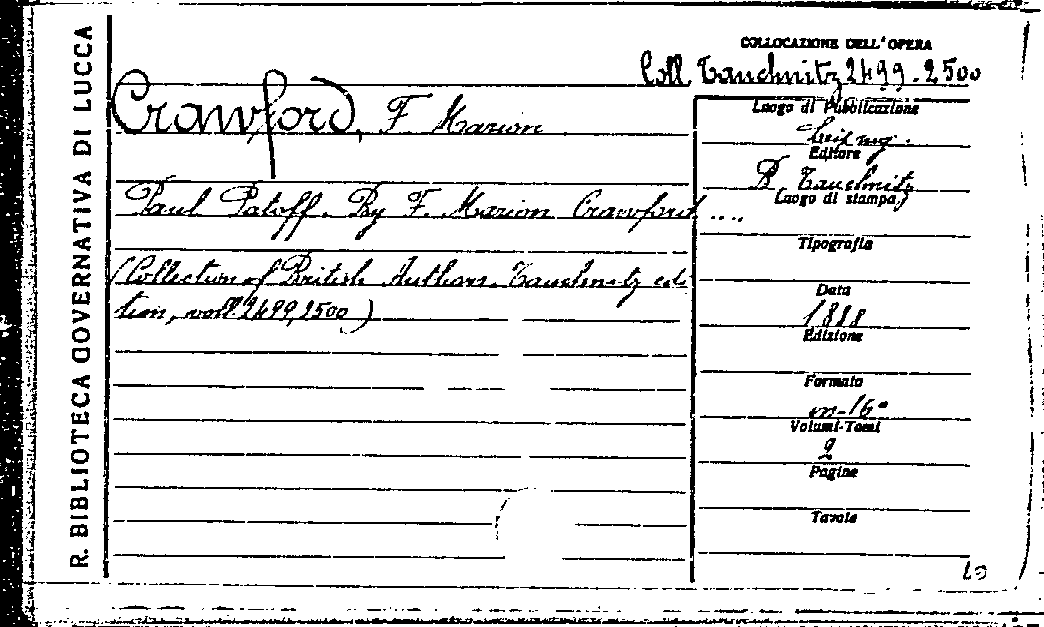 R. BIBLIOTECA GOVERNATIVA DI LUCCA
COLLOCAZIONE DELL'OPERA
Coll. Tauchnitz 2499-2500
Crawford, F. Marion
Paul Patoff. By F. Marion Crawford ....
(Collection of British Authors. Tauchnitz edi
tion, voll 2499, 2500)
Luogo di Pubblicazione
Leipzig.
Editore
B. Tauchnitz
Luogo di stampa
Tipografia
Data
1888
Edizione
Formato
in-16°
Volumi-Tomi
2
Pagine
Tavole